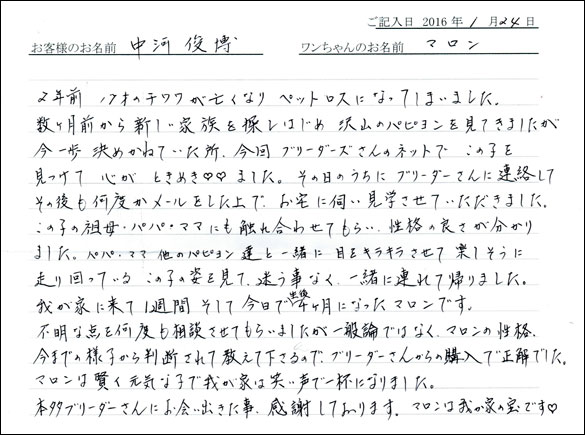 ご記入日 2016年 1月 24日
お客様のお名前 中河 俊博 ワンちゃんのお名前 マロン
2年前 17才のチワワが亡くなり ペットロスになってしまいました。
数ヶ月前から新しい家族を探しはじめ 沢山のパピヨンを見てきましたが
今一歩 決めかねていた所、今回 ブリーダーズさんのネットで この子を
見つけて 心が ときめき♡♡ました。その日のうちに ブリーダーさんに連絡して
その後も何度かメールをした上で、お宅に伺い見学させていただきました。
この子の祖母・パパ・ママにも触れ合わせてもらい、性格の良さが分かり
ました。パパ・ママ 他のパピヨン達と一緒に 目をキラキラさせて 楽しそうに
走り回っている この子の姿を見て、迷う事なく、一緒に連れて帰りました。
我が家に来て 1週間 そして 今日で生後4ヶ月になったマロンです。
不明な点を何度も相談させてもらいましたが一般論ではなく、マロンの性格、
今までの様子から判断されて教えて下さるので、ブリーダーさんからの購入で正解でした。
マロンは賢く元気な子で我が家は笑い声で一杯になりました。
本多ブリーダーさんにお会い出きた事、感謝しております。マロンは我が家の宝です♡